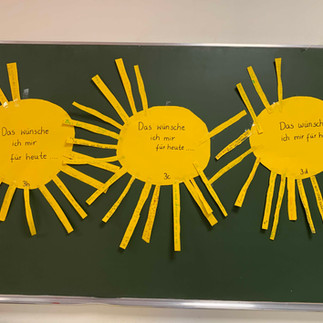 Das wünsche
ich mir
für heute
Das wünsche
ich mir
für heute
3c
Das wünsche
ich mir für h
3d